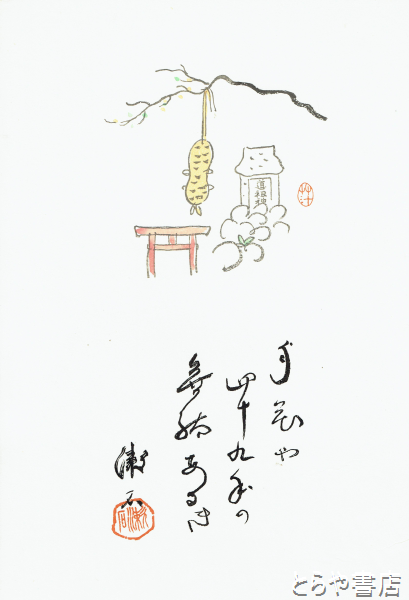 道祖神
月花や
四十九年の
無駄あるき
漱石
とらや書店